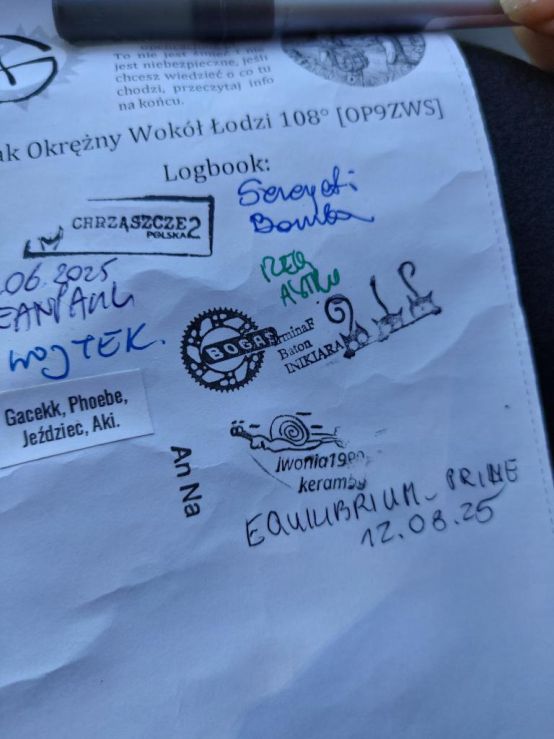 To nie jest śmieć i nie
jest niebezpieczne, jeśli
chcesz wiedzieć o co tu
chodzi, przeczytaj info
na końcu.
ak Okrężny Wokół Łodzi 108° [OP9ZWS]
Logbook:
CHRZĄSZCZE2
POLSKA
Bomba
.06.2025
WOJTEK.
BOGA
rminaF
Baton
INIKIARA
Gacekk, Phoebe,
Jeździec, Aki.
An Na
iwonia1980
keramby
EQUILIBRIUM_PRIME
12.08.25